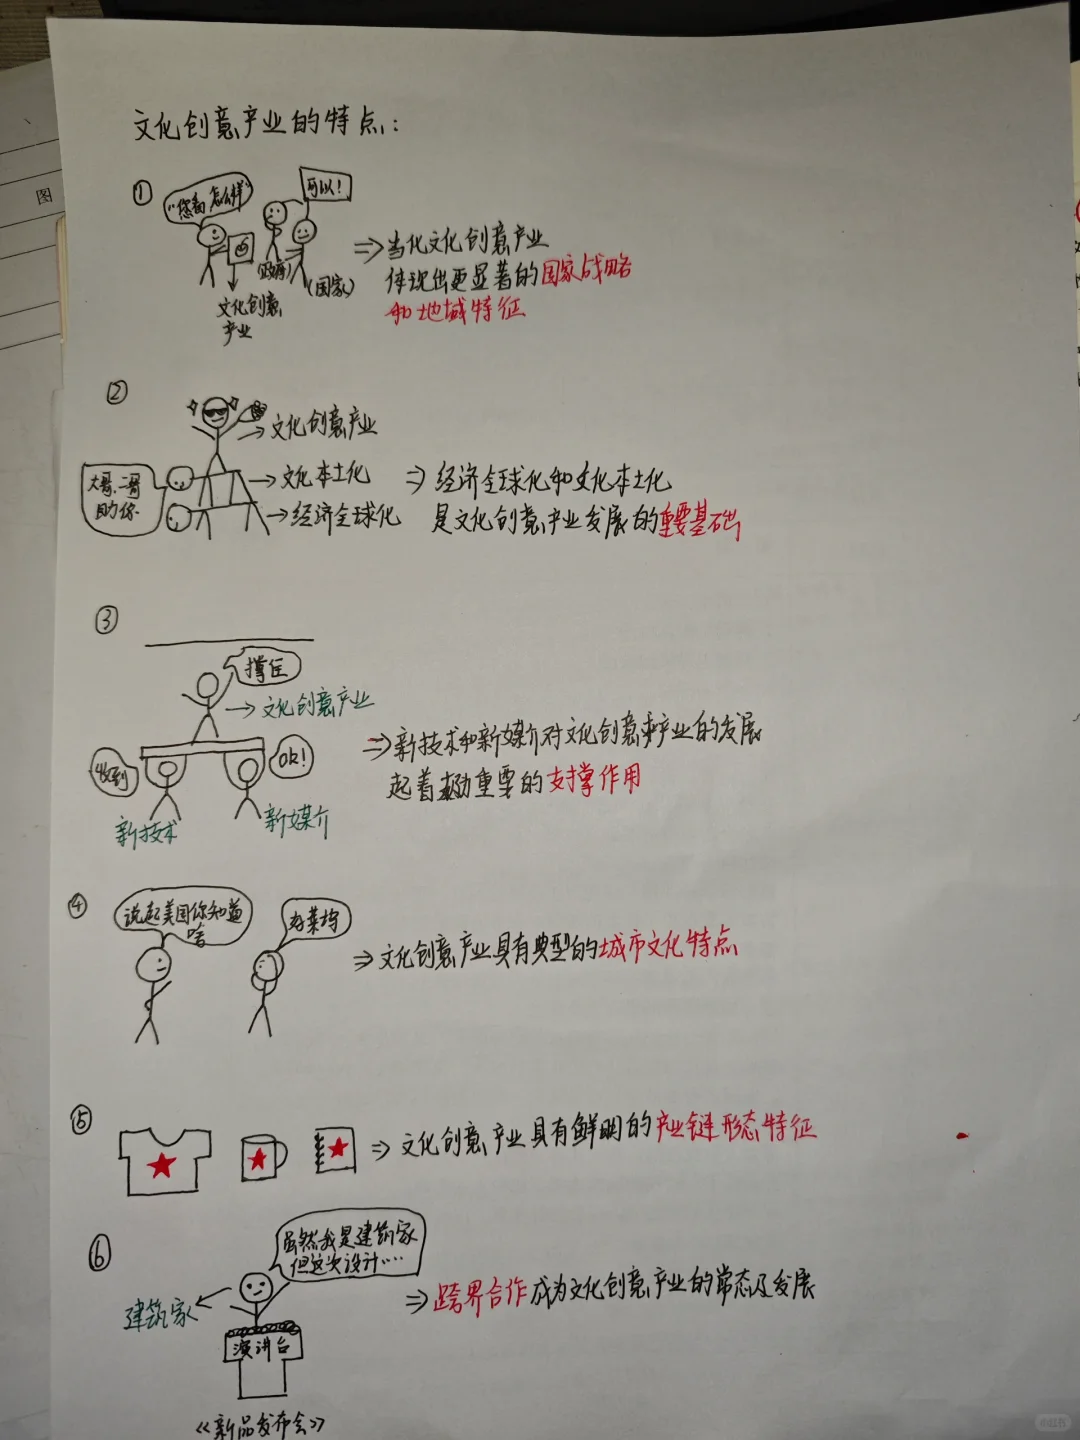 图
文化创意产业的特点:
①
"您看,怎么样"
可以!
(政府)
(国家)
文化创意
产业
⇒当化文化创意产业
体现出更显著的国家战略
和地域特征
②
→文化创意产业
大哥、二哥
助你
→文化本土化
→经济全球化
⇒经济全球化和文化本土化
是文化创意产业发展的重要基础
③
撑住
→文化创意产业
收到
OK!
新技术
新媒介
⇒新技术和新媒介对文化创意产业的发展
起着重要的支撑作用
④
说起美国你知道
啥
好莱坞
⇒文化创意产业具有典型的城市文化特点
⑤
⇒文化创意产业具有鲜明的产业链形态特征
⑥
虽然我是建筑家
但这次设计……
建筑家
演讲台
《新品发布会》
⇒跨界合作成为文化创意产业的常态及发展
小红书